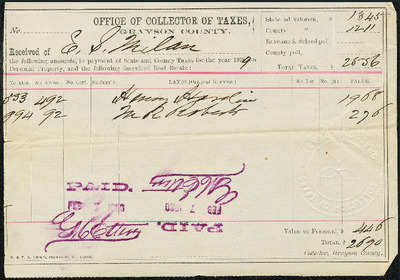 OFFICE OF COLLECTOR OF TAXES,
GRAYSON COUNTY.
No.
State ad valorem, $ 1345
County " 1211
Revenue & School poll
County poll,
TOTAL TAXES, $ 2556
Received of E. S. Milan
the following amounts, in payment of State and County Taxes for the year 1879 on
Personal Property, and the following described Real Estate:
No. Cert. LANDS (Original Grantee.) No Lot No. Blk. VALUE.
533 492 Henry Hardin 1968
994 92 M. R. Roberts 276
PAID.
FEB 7 1880
PAID.
FEB 7 1880
Value of Personal, $ 446
TOTAL, $ 2690
Collector, Grayson County.